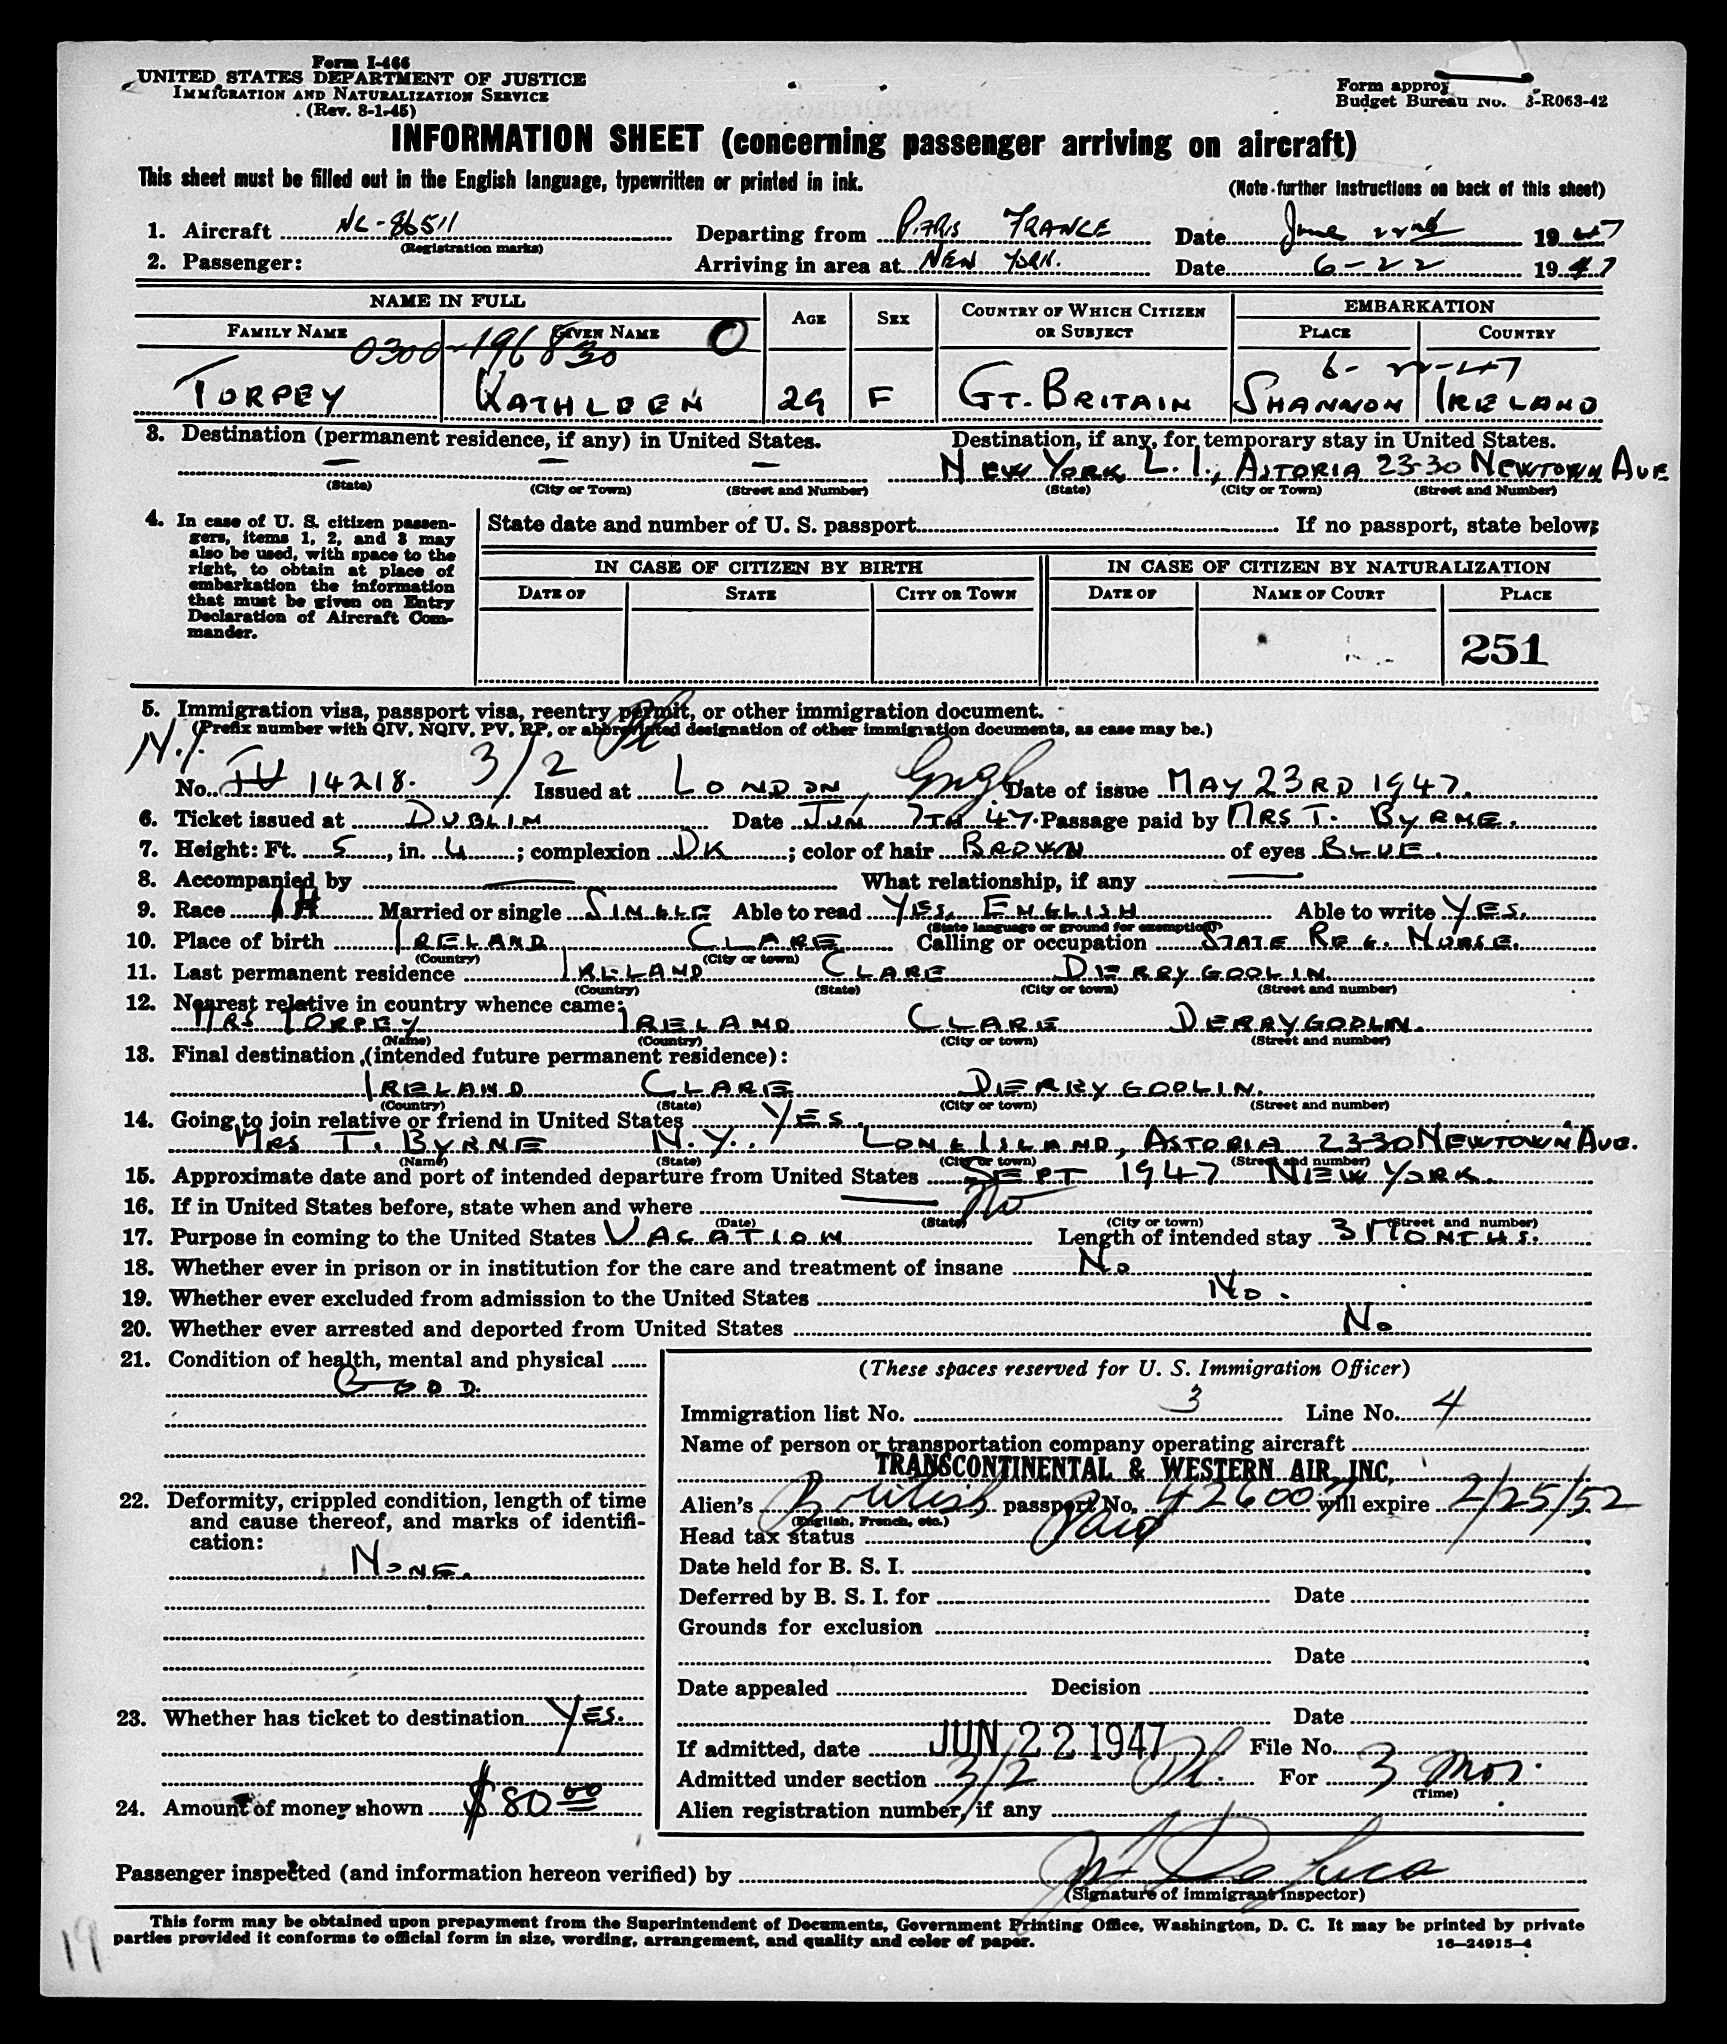 Form I-466
UNITED STATES DEPARTMENT OF JUSTICE
IMMIGRATION AND NATURALIZATION SERVICE
(Rev. 8-1-45)
Form approv
Budget Bureau No. 3-R063-42
INFORMATION SHEET (concerning passenger arriving on aircraft)
This sheet must be filled out in the English language, typewritten or printed in ink.
(Note further instructions on back of this sheet)
1. Aircraft NC-86511 Departing from PARIS FRANCE Date June 22nd 1947
(Registration marks)
2. Passenger: Arriving in area at NEW YORK. Date 6-22 1947
NAME IN FULL AGE SEX COUNTRY OF WHICH CITIZEN OR SUBJECT EMBARKATION
FAMILY NAME GIVEN NAME PLACE COUNTRY
0300-196830 O
6-22-47
TORPEY KATHLEEN 29 F GT. BRITAIN SHANNON IRELAND
3. Destination (permanent residence, if any) in United States. Destination, if any, for temporary stay in United States.
— — — NEW YORK L.I., ASTORIA 23-30 NEWTOWN AVE
(State) (City or Town) (Street and Number) (State) (City or Town) (Street and Number)
4. In case of U. S. citizen passengers, items 1, 2, and 3 may also be used, with space to the right, to obtain at place of embarkation the information that must be given on Entry Declaration of Aircraft Commander.
State date and number of U. S. passport If no passport, state below:
IN CASE OF CITIZEN BY BIRTH IN CASE OF CITIZEN BY NATURALIZATION
DATE OF STATE CITY OR TOWN DATE OF NAME OF COURT PLACE
251
5. Immigration visa, passport visa, reentry permit, or other immigration document.
(Prefix number with QIV, NQIV, PV, RP, or abbreviated designation of other immigration documents, as case may be.)
No. 14218. 3/2 Issued at LONDON, Engl Date of issue MAY 23RD 1947.
6. Ticket issued at DUBLIN Date JUN 7TH 47. Passage paid by MRS T. BYRNE.
7. Height: Ft. 5, in. 4; complexion DK; color of hair BROWN of eyes BLUE.
8. Accompanied by — What relationship, if any —
9. Race IH Married or single SINGLE Able to read YES. ENGLISH Able to write YES.
(State language or ground for exemption)
10. Place of birth IRELAND CLARE Calling or occupation STATE REG. NURSE.
(Country) (City or town)
11. Last permanent residence IRELAND CLARE DERRYGOOLIN.
(Country) (State) (City or town) (Street and number)
12. Nearest relative in country whence came:
MRS TORPEY IRELAND CLARE DERRYGOOLIN.
(Name) (Country) (City or town) (Street and number)
13. Final destination (intended future permanent residence):
IRELAND CLARE DERRYGOOLIN.
(Country) (State) (City or town) (Street and number)
14. Going to join relative or friend in United States YES.
MRS T. BYRNE N.Y. LONG ISLAND, ASTORIA 23-30 NEWTOWN AVE.
(Name) (State) (City or town) (Street and number)
15. Approximate date and port of intended departure from United States SEPT 1947 NEW YORK.
16. If in United States before, state when and where — No
(Date) (State) (City or town) (Street and number)
17. Purpose in coming to the United States VACATION Length of intended stay 3 MONTHS.
18. Whether ever in prison or in institution for the care and treatment of insane No
19. Whether ever excluded from admission to the United States No.
20. Whether ever arrested and deported from United States No
21. Condition of health, mental and physical
GOOD.
22. Deformity, crippled condition, length of time and cause thereof, and marks of identification:
NONE.
23. Whether has ticket to destination YES.
24. Amount of money shown $80.00
(These spaces reserved for U. S. Immigration Officer)
Immigration list No. 3 Line No. 4
Name of person or transportation company operating aircraft
TRANSCONTINENTAL & WESTERN AIR, INC.
Alien's British passport No. 426007 will expire 2/25/52
(English, French, etc.)
Head tax status Paid
Date held for B. S. I.
Deferred by B. S. I. for Date
Grounds for exclusion
Date
Date appealed Decision
Date
If admitted, date JUN 22 1947 File No.
Admitted under section 3/2 For 3 mos.
(Time)
Alien registration number, if any
Passenger inspected (and information hereon verified) by
(Signature of immigrant inspector)
This form may be obtained upon prepayment from the Superintendent of Documents, Government Printing Office, Washington, D. C. It may be printed by private
parties provided it conforms to official form in size, wording, arrangement, and quality and color of paper.
16—24915-4
19